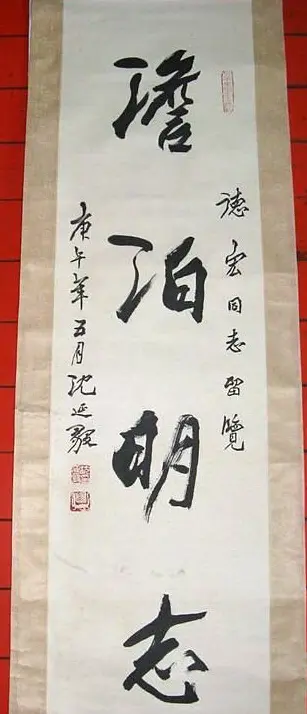 德宏同志留覽
澹泊明志
庚午年五月沈延毅